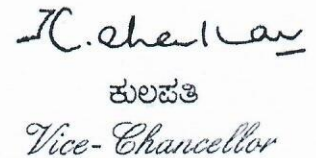 ಕುಲಪತಿ
Vice-Chancellor